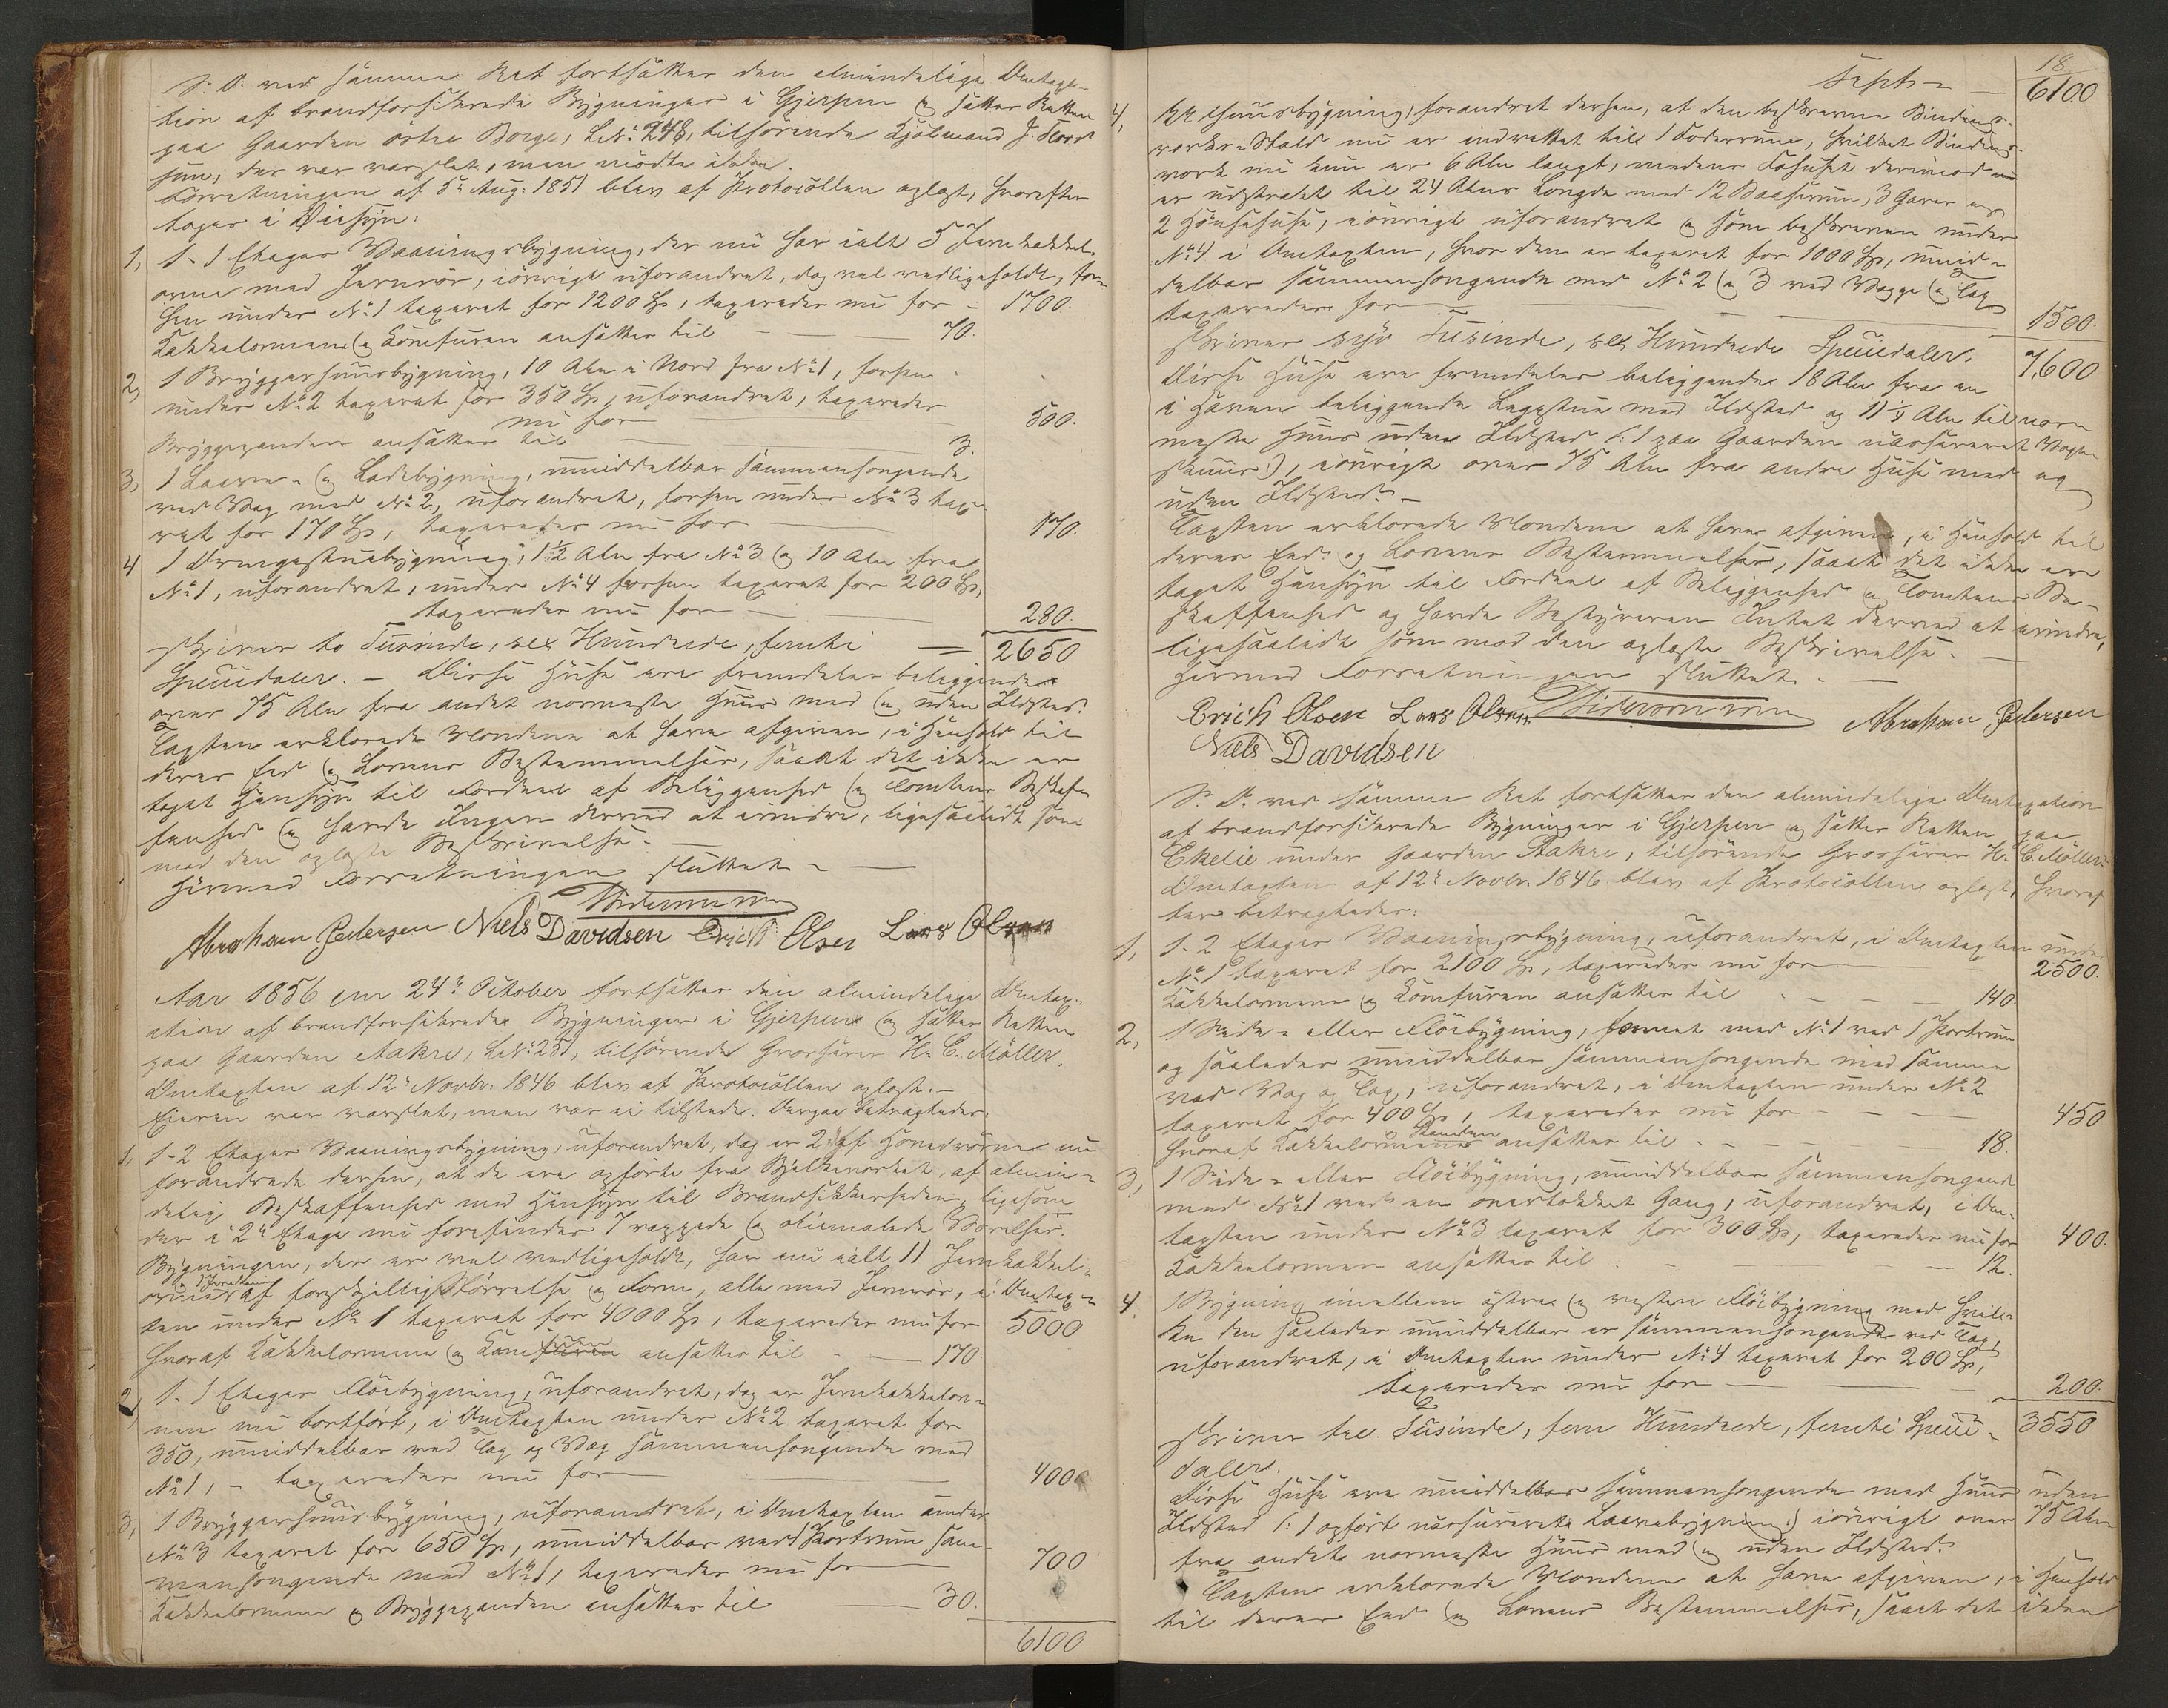 S. D. ved samme Ret fortsattes den almindelige Omtaxa-
tion af brandforsikrede Bygninger i Gjerpen og sattes Retten
paa Gaarden østre Borge, L.No 248, tilhørende Kjøbmand J.
sen, der var varslet, men mødte ikke.
Forretningen af 5te Aug: 1851 blev af Protocollen oplæst, hvorefter
toges i Øiesyn:
1, 1. 1 Etages Vaaningsbygning, der nu har ialt 5 Jernkakkel-
ovne med Jernrør, iøvrigt uforandret, dog vel vedligeholdt, for-
hen under No 1 taxeret for 1200 Sp, taxeredes nu for — 1700.
Kakkelovnene og Comfuren ansattes til — 70.
2, 1 Bryggerhuusbygning, 10 Alen i Nord fra No 1, forhen
under No 2 taxeret for 350 Sp, uforandret, taxeredes
nu for — 500.
Bryggepanden ansattes til — 3.
3, 1 Laave- og Ladebygning, umiddelbar sammenhængende
ved Væg med No 2, uforandret, forhen under No 3 taxe-
ret for 170 Sp, taxeredes nu for — 170.
4 1 Drengestuebygning, 1½ Alen fra No 3 og 10 Alen fra
No 1, uforandret, under No 4 forhen taxeret for 200 Sp,
taxeredes nu for — 280.
skriver to Tusinde, sex Hundrede, femti — 2650
Speciedaler. — Disse Huse ere fremdeles beliggende
over 75 Alen fra andet nærmeste Huus med og uden Ildsted.
Taxten erklærede Mændene at have afgivet, i Henhold til
deres Eed og Lovens Bestemmelser, saaat det ikke er
taget Hensyn til Fordeel af Beliggenhed og Tomtens Beskaf-
fenhed og havde Ingen derved at erindre, ligesaalidt som
mod den oplæste Beskrivelse.
Hermed Forretningen sluttet. —
Abraham Pedersen Niels Davidsen Erich Olsen Lars Olsen
Aar 1856 den 24de October fortsattes den almindelige Omtax-
ation af brandforsikrede Bygninger i Gjerpen og sattes Retten
paa Gaarden Aakre, L.No 251, tilhørende Grosserer H. C. Møller.
Omtaxten af 12te Novbr. 1846 blev af Protocollen oplæst. —
Eieren var varslet, men var ei tilstede. Derpaa betragtedes:
1, 1. 2 Etages Vaaningsbygning, uforandret, dog er 2 af Hovedrørene nu
forandrede derhen, at de ere opførte fra Bjelkeværket, af almin-
delig Beskaffenhed med Hensyn til Brandsikkerheden, ligesom
der i 2den Etage nu forefindes 7 trappede og oliemalede Værelser.
Bygningen, der er vel vedligeholdt, har nu ialt 11 Jernkakkel-
ovne af forskjellig Størrelse og Form, alle med Jernrør, i Omtax-
ten under No 1 taxeret for 4000 Sp, taxeredes nu for 5000
hvoraf Kakkelovnene og ansattes til — 170.
2, 1. 1 Etages Fløibygning, uforandret, dog er Jernkakkelov-
nen nu bortført, i Omtaxten under No 2 taxeret for
350, umiddelbar ved Tag og Væg sammenhængende med
No 1, — taxeredes nu for — 400
3, 1 Bryggerhuusbygning, uforandret, i Omtaxten under
No 3 taxeret for 650 Sp, umiddelbar ved 1 Portrum sam-
menhængende med No 1, taxeredes nu for — 700
Kakkelovnene og Bryggepanden ansattes til — 30.
6100
18
Transp. — 6100
4, Huusbygning, forandret derhen, at den beskrevne Bindings-
værks-Stald nu er indrettet til 1 Foderrum, hvilket Bindings-
værk nu kun er 6 Alen langt, medens Fæhuset derimod
er udstrakt til 24 Alens Længde med 12 Baaserum, 3 Garer og
2 Hønsehuse, iøvrigt uforandret og som beskreven under
No 4 i Omtaxten, hvor den er taxeret for 1000 Sp, umid-
delbar sammenhængende med No 2 og 3 ved Vægge og Tag
taxeredes for — 1500.
skriver syv Tusinde, sex Hundrede Speciedaler. 7,600
Disse Huse ere fremdeles beliggende 18 Alen fra en
i Haven beliggende Lysthuus med Ildsted og 11½ Alen til nær-
meste Huus uden Ildsted (: 1 paa Gaarden uassureret Vogn-
skuur :), iøvrigt over 75 Alen fra andre Huse med og
uden Ildsted. —
Taxten erklærede Mændene at have afgivet, i Henhold til
deres Eed og Lovens Bestemmelser, saaat det ikke er
taget Hensyn til Fordeel af Beliggenhed og Tomtens Be-
skaffenhed og havde Bestyreren Intet derved at erindre,
ligesaalidt som mod den oplæste Beskrivelse. —
Hermed Forretningen sluttet. —
Erich Olsen Lars Olsen Abraham Pedersen
Niels Davidsen
S. D. ved samme Ret fortsattes den almindelige Omtaxation
af brandforsikrede Bygninger i Gjerpen og sattes Retten paa
Ekelie under Gaarden Aakre, tilhørende Grosserer H. C. Møller.
Omtaxten af 12te Novbr. 1846 blev af Protocollen oplæst, hvoref-
ter betragtedes:
1, 1. 2 Etages Vaaningsbygning, uforandret, i Omtaxten under
No 1 taxeret for 2100 Sp, taxeredes nu for — 2500.
Kakkelovnene og Comfuren ansattes til — 140.
2, 1 Side- eller Fløibygning, forenet med No 1 ved 1 Portrum
og saaledes umiddelbar sammenhængende med samme
ved Væg og Tag, uforandret, i Omtaxten under No 2
taxeret for 400 Sp, taxeredes nu for — 450
hvoraf Kakkelovnene ansattes til — 18.
3, 1 Side- eller Fløibygning, umiddelbar sammenhængende
med No 1 ved en overdækket Gang, uforandret, i Om-
taxten under No 3 taxeret for 300 Sp, taxeredes nu for 400.
Kakkelovnen ansattes til — 12.
4. 1 Bygning imellem østre og vestre Fløibygning med hvil-
ken den saaledes umiddelbar er sammenhængende ved Tag,
uforandret, i Omtaxten under No 4 taxeret for 200 Sp,
taxeredes nu for — 200.
skriver tre Tusinde, fem Hundrede, femti Specie- 3550
daler.
Disse Huse ere umiddelbar sammenhængende med Huus uden
Ildsted (: 1 opført uassureret Laavebygning :) iøvrigt over 75 Alen
fra andet nærmeste Huus med og uden Ildsted.
Taxten erklærede Mændene at have afgivet, i Henhold
til deres Eed og Lovens Bestemmelser, saaat det ikke